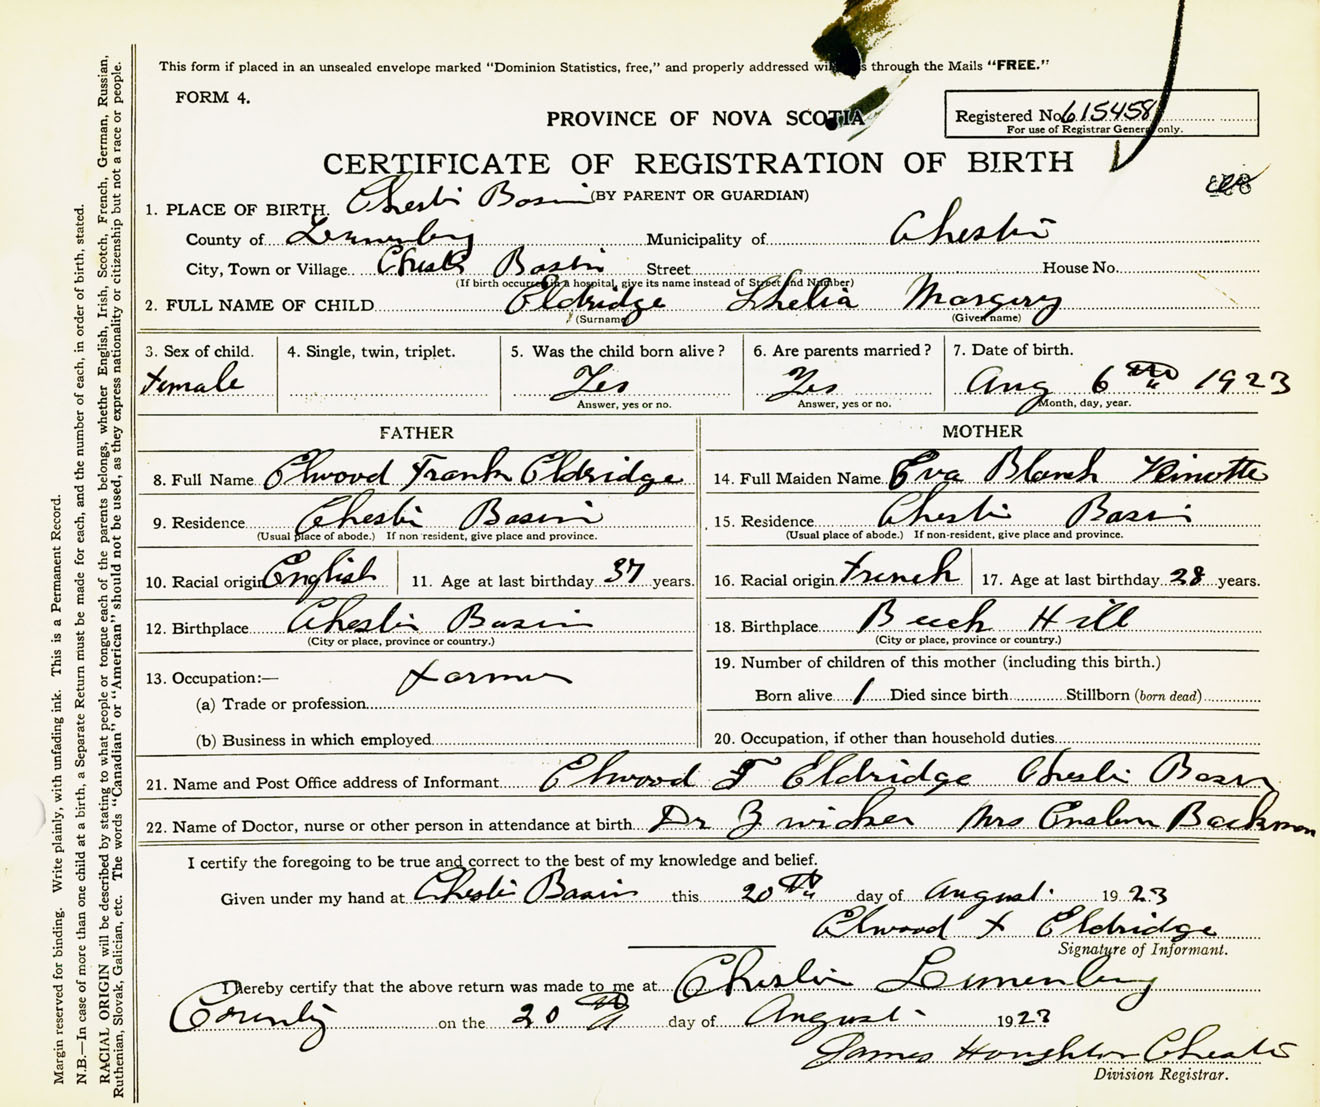 This form if placed in an unsealed envelope marked "Dominion Statistics, free," and properly addressed will pass through the Mails "FREE."
FORM 4.
PROVINCE OF NOVA SCOTIA
Registered No. 615458
For use of Registrar General only.
CERTIFICATE OF REGISTRATION OF BIRTH
(BY PARENT OR GUARDIAN)
1. PLACE OF BIRTH. Chester Basin
County of Lunenburg Municipality of Chester
City, Town or Village Chester Basin Street House No.
(If birth occurred in a hospital, give its name instead of Street and Number)
2. FULL NAME OF CHILD Eldridge Shelia Margery
(Surname) (Given name)
3. Sex of child. 4. Single, twin, triplet. 5. Was the child born alive? 6. Are parents married? 7. Date of birth.
Female Yes Yes Aug 6th 1923
Answer, yes or no. Answer, yes or no. Month, day, year.
FATHER MOTHER
8. Full Name Elwood Frank Eldridge 14. Full Maiden Name Eva Blanch
9. Residence Chester Basin 15. Residence Chester Basin
(Usual place of abode.) If non resident, give place and province. (Usual place of abode.) If non-resident, give place and province.
10. Racial origin English 11. Age at last birthday 37 years. 16. Racial origin French 17. Age at last birthday 28 years.
12. Birthplace Chester Basin 18. Birthplace Beech Hill
(City or place, province or country.) (City or place, province or country.)
13. Occupation:— Farmer 19. Number of children of this mother (including this birth.)
(a) Trade or profession Born alive 1 Died since birth Stillborn (born dead)
(b) Business in which employed 20. Occupation, if other than household duties
21. Name and Post Office address of Informant Elwood F Eldridge Chester Basin
22. Name of Doctor, nurse or other person in attendance at birth Dr Zwicker Mrs Backman
I certify the foregoing to be true and correct to the best of my knowledge and belief.
Given under my hand at Chester Basin this 20th day of August 1923
Elwood F Eldridge
Signature of Informant.
I hereby certify that the above return was made to me at Chester Lunenburg
County on the 20th day of August 1923
James Houghton Chester
Division Registrar.
Margin reserved for binding. Write plainly, with unfading ink. This is a Permanent Record.
N.B.—In case of more than one child at a birth, a Separate Return must be made for each, and the number of each, in order of birth, stated.
RACIAL ORIGIN will be described by stating to what people or tongue each of the parents belongs, whether English, Irish, Scotch, French, German, Russian,
Ruthenian, Slovak, Galician, etc. The words "Canadian" or "American" should not be used, as they express nationality or citizenship but not a race or people.